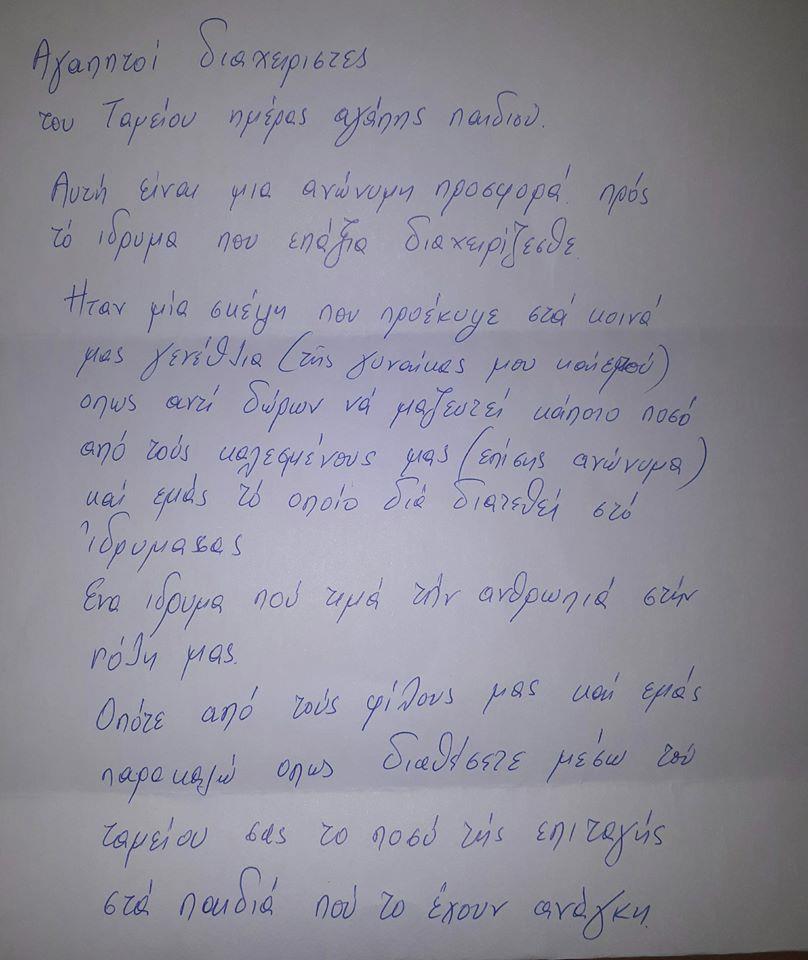 Αγαπητοί διαχειριστες
του Ταμείου ημέρας αγάπης παιδιού.
Αυτή είναι μια ανώνυμη προσφορά πρός
τό ιδρυμα που επάξια διαχειρίζεσθε.
Ηταν μία σκέψη που προέκυψε στά κοινά
μας γενέθλια (τής γυναίκας μου καί εμού)
οπως αντί δώρων νά μαζευτεί κάποιο ποσό
από τούς καλεσμένους μας (επίσης ανώνυμα)
καί εμάς τό οποίο διά διατεθεί στό
ίδρυμα σας
Ενα ιδρυμα πού τιμά τήν ανθρωπιά στήν
πόλη μας.
Οπότε από τούς φίλους μας καί εμάς
παρακαλώ οπως διαθέσετε μέσω τού
ταμείου σας το ποσό τής επιταγής
στά παιδιά πού το έχουν ανάγκη.